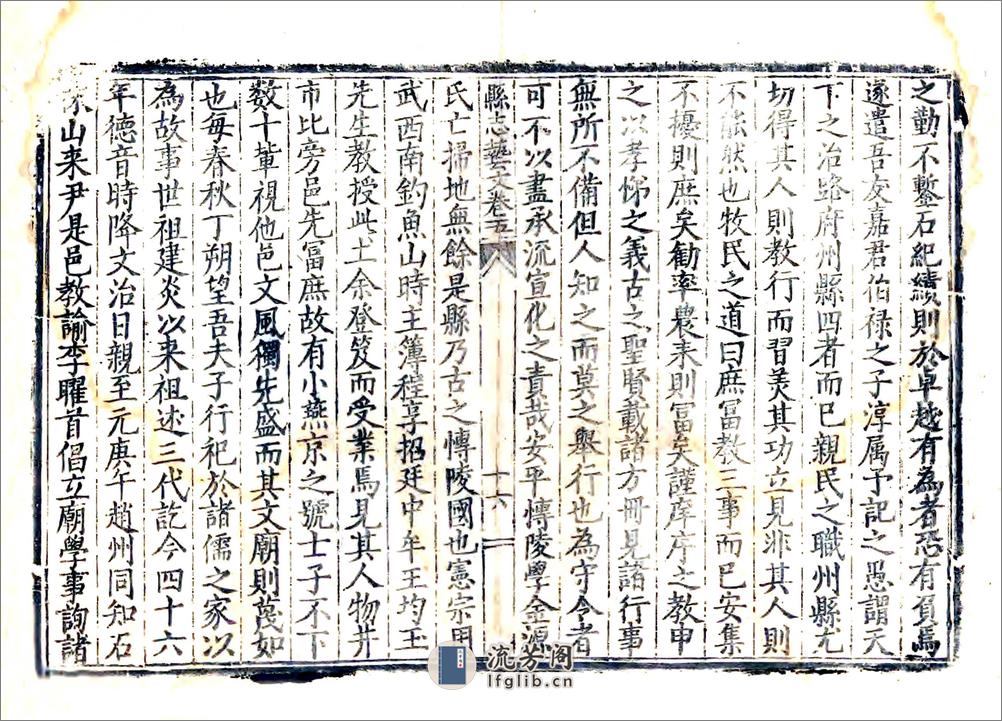 之勤不鏨石紀績則於卓越有為者恐有負焉
遂遣吾友嘉君伯禄之子淳属予記之愚謂天
下之治路府州縣四者而已親民之職州縣尤
切得其人則教行而習美其功立見非其人則
不能然也牧民之道曰庶冨教三事而已安集
不擾則庶矣勸率農耒則冨矣謹庠序之教申
之以孝悌之義古之聖賢載諸方冊見諸行事
無所不備但人知之而莫之舉行也為守令者
可不以盡承流宣化之責哉安平慱陵學金源
縣志藝文卷五 十六
氏亡掃地無餘是縣乃古之慱陵國也憲宗用
武西南釣魚山時主簿程享招廷中牟王均玉
先生教授此土余登笈而受業焉見其人物井
市比旁邑先冨庶故有小燕京之號士子不下
数十輩視他邑文風獨先盛而其文廟則蔑如
也每春秋丁朔望吾夫子行祀於諸儒之家以
為故事世祖建炎以来祖述三代訖今四十六
年德音時降文治日親至元庚午趙州同知石
山来尹是邑教諭李曜首倡立廟學事詢諸
流芳阁
lfglib.cn